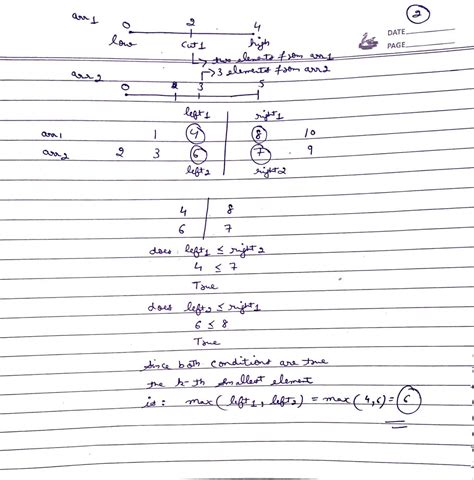 2
DATE
PAGE
arr1 0 2 4
low cut1 high
two elements from arr1
3 elements from arr2
arr2 0 2 3 5
left1 right1
arr1 1 4 8 10
arr2 2 3 6 7 9
left2 right2
4 8
6 7
does left1 ≤ right2
4 ≤ 7
True
does left2 ≤ right1
6 ≤ 8
True
Since both conditions are true
the k-th smallest element
is: max(left1, left2) = max(4,6) = 6